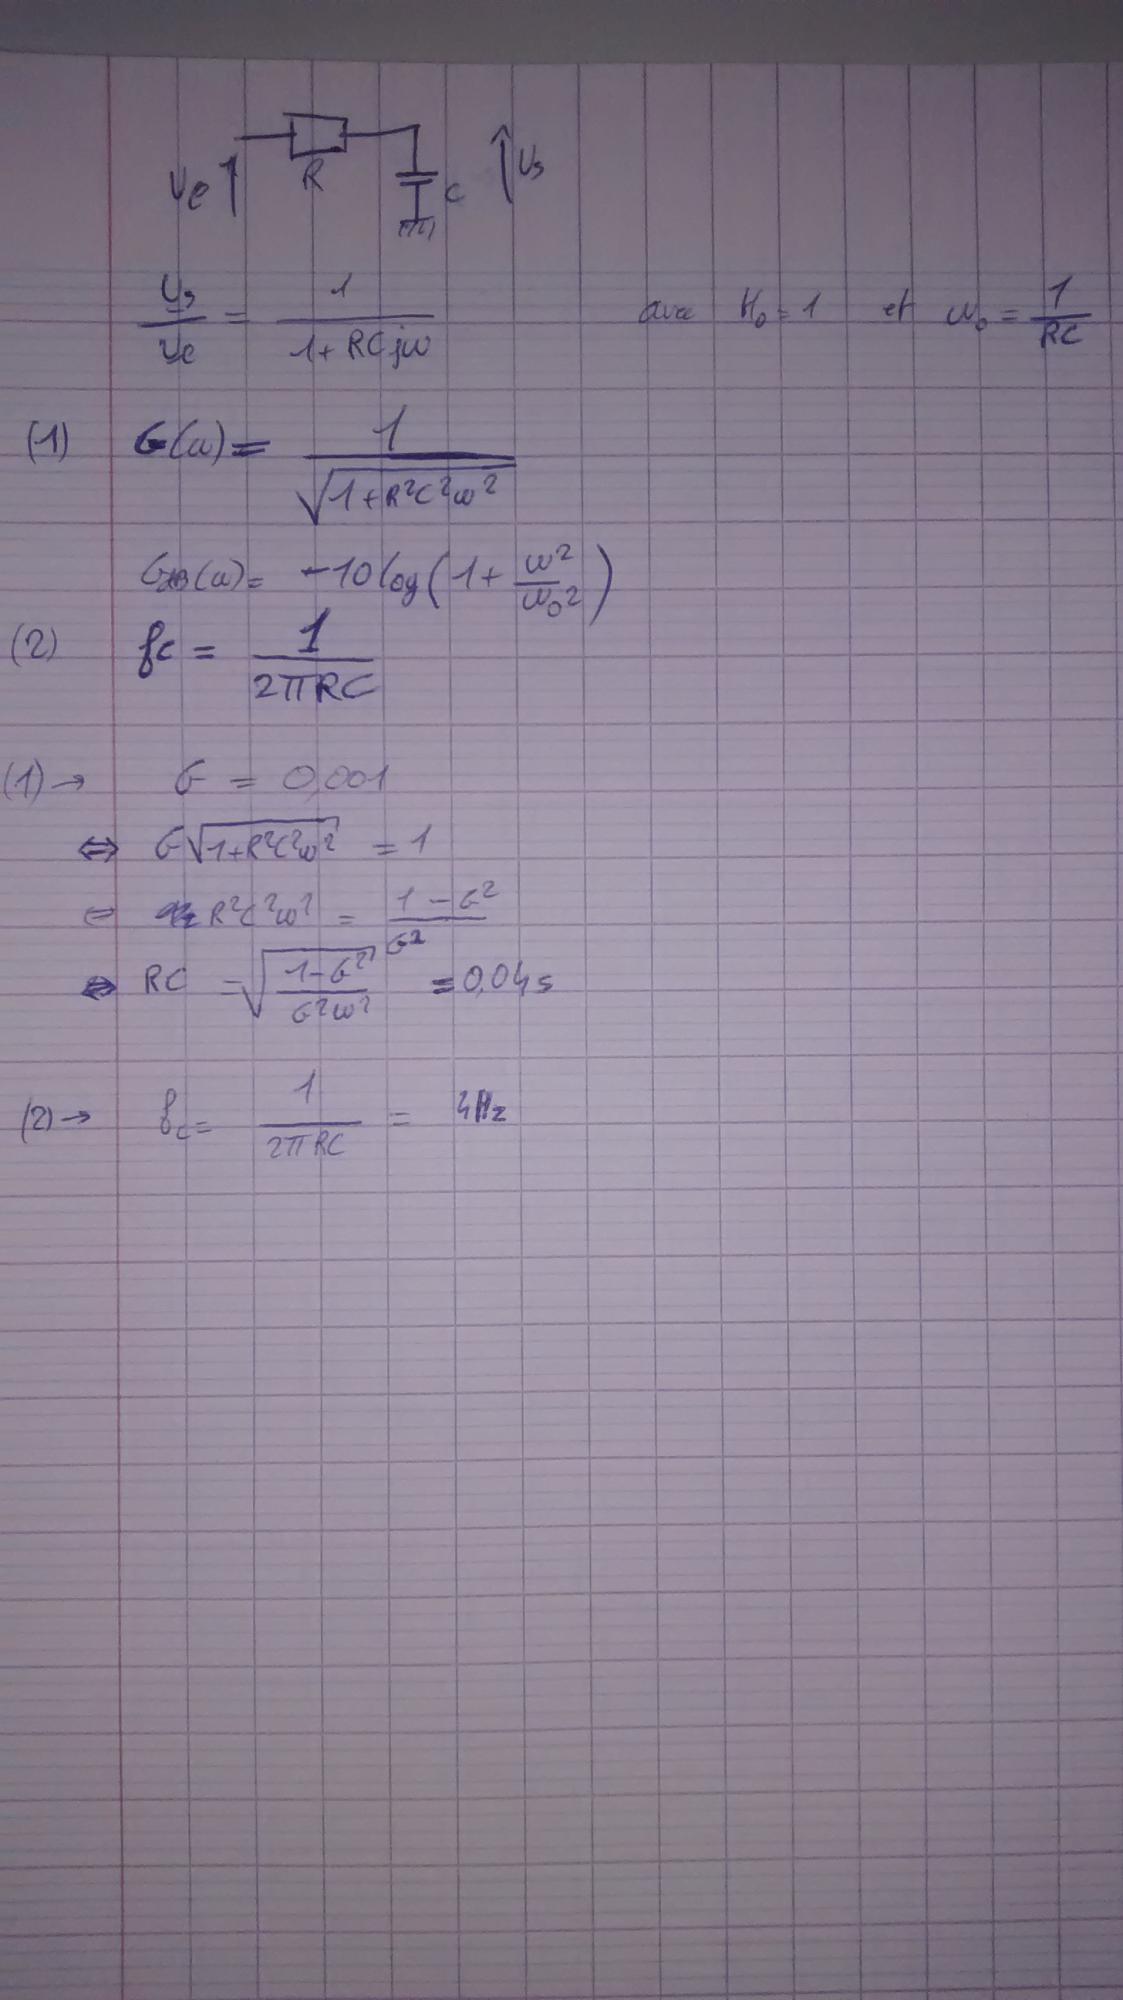 Ve R C Us
Us/Ve = 1/(1+RCjω) avec H₀ = 1 et ω₀ = 1/RC
(1) G(ω) = 1/√(1+R²C²ω²)
GdB(ω) = -10 log(1 + ω²/ω₀²)
(2) fc = 1/(2πRC)
(1) → G = 0,001
⇔ G√(1+R²C²ω²) = 1
= R²C²ω² = (1-G²)/G²
⇔ RC = √((1-G²)/(G²ω²)) = 0,04s
(2) → fc = 1/(2πRC) = 4Hz